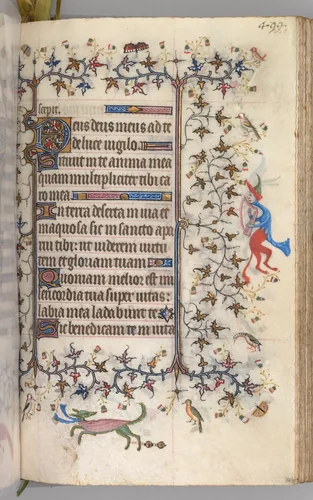 scepit.
Deus deus meus ad te
de luce vigilo.
Sitivit in te anima mea
quam multipliciter tibi ca
ro mea
In terra deserta in via et
inaquosa sic in sancto apa
rui tibi: ut viderem virtu
tem et gloriam tuam
Quoniam melior est mi
sericordia tua super vitas:
labia mea laudabunt te
Sic benedicam te in vita